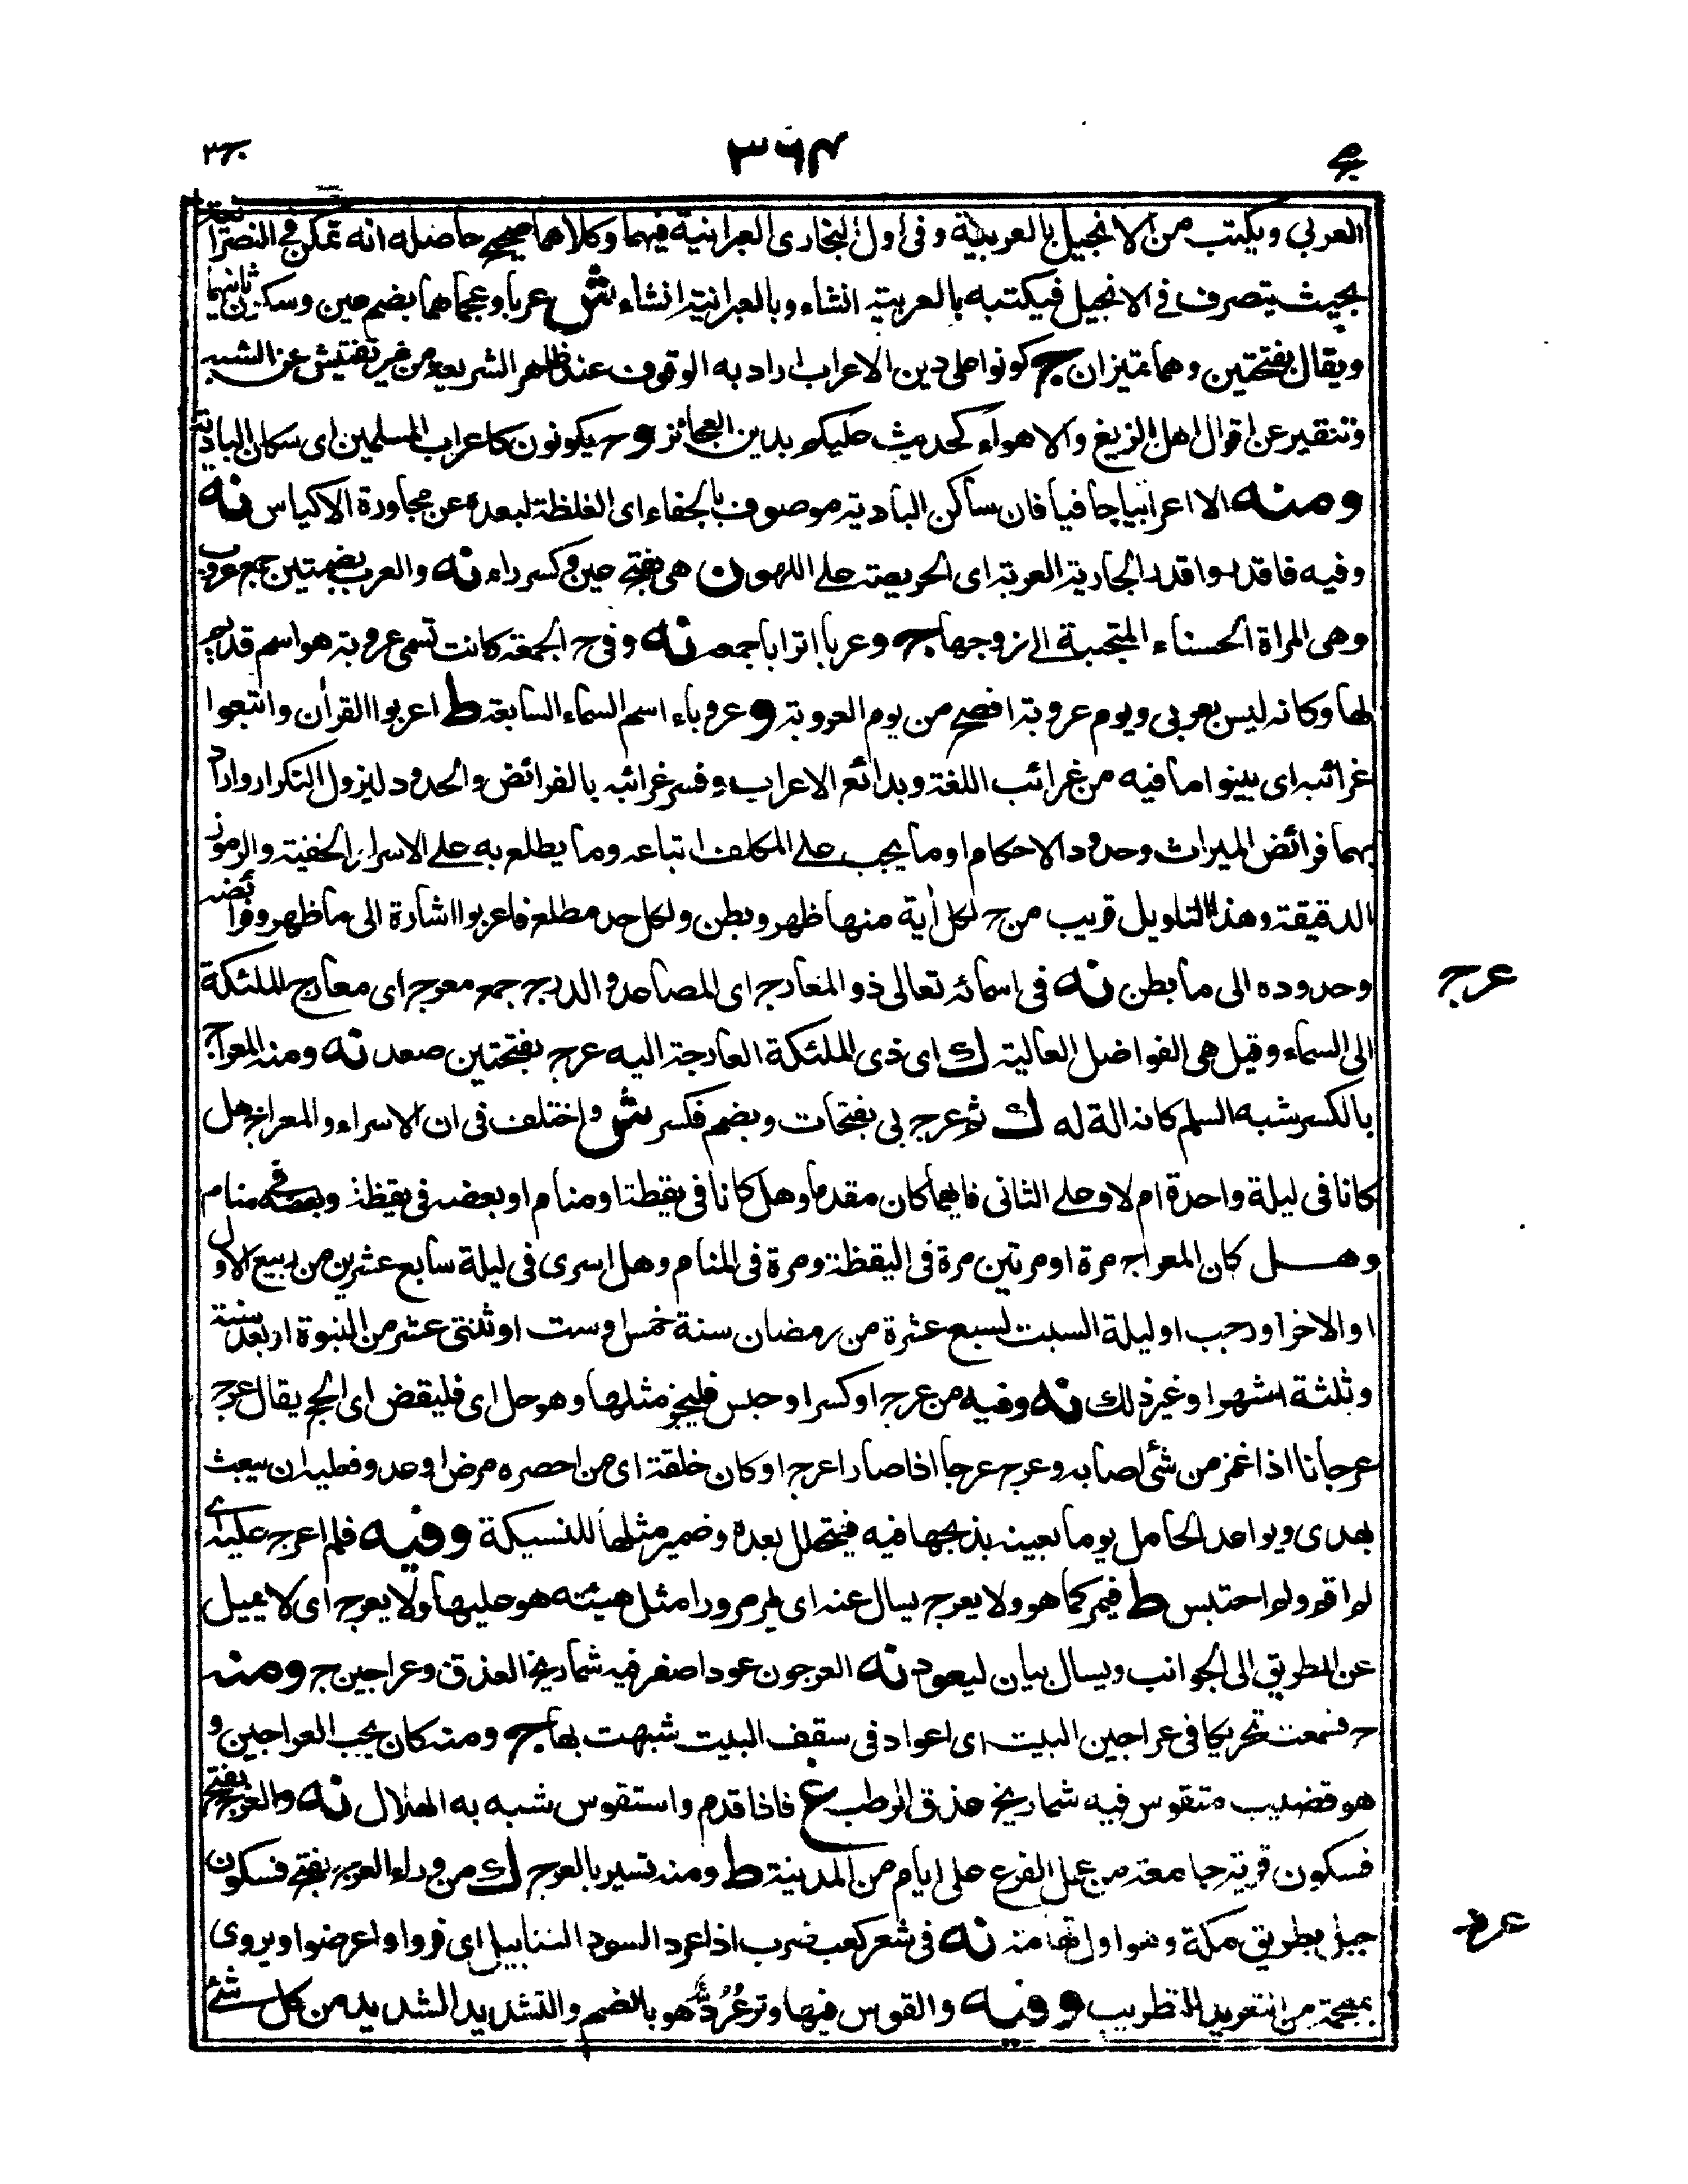 العربي ويكتب من الانجيل بالعربية وفى اول البخارى العبرانية فيهما وكلاهما صحيح حاصله انه تمكن فى النصرانية
بحيث يتصرف فى الانجيل فيكتبه بالعربية انشاء وبالعبرانية انشاء ش عربا وعجما هما بضم عين وسكون ثانيهما
ويقال بفتحتين وهما تميزان ج كونوا على دين الاعراب اراد به الوقوف عند ظاهر الشريعة من غير تفتيش عن الشبه
وتنقير عن اقوال اهل الزيغ والاهواء كحديث عليكم بدين العجائز و ح يكونون كاعراب المسلمين اى سكان البادية
ومنه الا اعرابيا جافيا فان ساكن البادية موصوف بالجفاء اى الغلظة لبعده عن مجاورة الاكياس نه
وفيه فاقدروا قدر الجارية العربة اى الحريصة على اللهو ن هى بفتح عين وكسر راء نه والعرب بضمتين جمع عروب
وهى المراة الحسناء المتحببة الى زوجها ج وعربا اترابا جمعه نه وفى ح الجمعة كانت تسمى عروبة هو اسم قديم
لها وكانه ليس بعربى ويوم عروبة افصح من يوم العروبة و عروباء اسم السماء السابعة ط اعربوا القرأن واتبعوا
غرائبه اى بينوا ما فيه من غرائب اللغة وبدائع الاعراب وفسر غرائبه بالفرائض والحدود ليزول التكرار واراد
بهما فرائض الميراث وحدود الاحكام او ما يجب على المكلف اتباعه وما يطلع به على الاسرار الخفية والرموز
الدقيقة وهذا التاويل قريب من ح لكل أية منها ظهر وبطن ولكل حد مطلع فاعربوا اشارة الى ما ظهر وفرائضه
وحدوده الى ما بطن نه فى اسمائه تعالى ذو المعارج اى المصاعد والدرج جمع معرج اى معارج الملئكة
الى السماء وقيل هى الفواضل العالية ك اى ذى الملئكة العارجة اليه عرج بفتحتين صعد نه ومنه المعراج
بالكسر شبه السلم كانه الة له ك ثم عرج بى بفتحات وبضم فكسر ش واختلف فى ان الاسراء والمعراج هل
كانا فى ليلة واحدة ام لا وعلى الثانى فايهما كان مقدما وهل كانا فى يقظة او منام او بعضه فى يقظة وبعضه فى منام
وهل كان المعراج مرة او مرتين مرة فى اليقظة ومرة فى المنام وهل اسرى فى ليلة سابع عشرين من ربيع الاول
او الاخر او رجب او ليلة السبت لسبع عشرة من رمضان سنة خمس او ست او ثنتى عشر من النبوة او بعد سنة
وثلثة اشهر او غير ذلك نه وفيه من عرج او كسر او حبس فليجز مثلها وهو حل اى فليقض اى الحج يقال عرج
عرجانا اذا غمز من شئ اصابه وعرج عرجا اذا صار اعرج او كان خلقة اى من احصره مرض او عدو فعليه ان يبعث
بهدى ويواعد الحامل يوما بعينه بذبحها فيه فيتحلل بعده وضمير مثلها للنسيكة وفيه فلم اعرج عليه اى
لم اقم ولم احتبس ط فيمر كما هو ولا يعرج يسال عنه اى يمر مرورا مثل هيئته هو عليها ولا يعرج اى لا يميل
عن الطريق الى الجوانب ويسال بيان ليعود نه العرجون عود اصفر فيه شماريخ العذق وعراجين ج ومنه
ح فسمعت تحريكا فى عراجين البيت اى اعواد فى سقف البيت شبهت بها ج ومنه كان يحب العراجين و
هو قضيب متقوس فيه شماريخ عذق الرطب غ فاذا قدم واستقوس شبه به الهلال نه والعرج بفتح
فسكون قرية جامعة من عمل الفرع على ايام من المدينة ط ومنه تسير بالعرج ك من وراء العرج بفتح فسكون
جبل بطريق مكة وهو اول تهامة نه فى شعر كعب ضرب اذا عرد السود التنابيل اى فروا واعرضوا ويروى
بمعجمة من التغريد التطريب وفيه والقوس فيها وتر عُرُدٌّ هو بالضم والتشديد الشديد من كل شئ
عرج
عرد